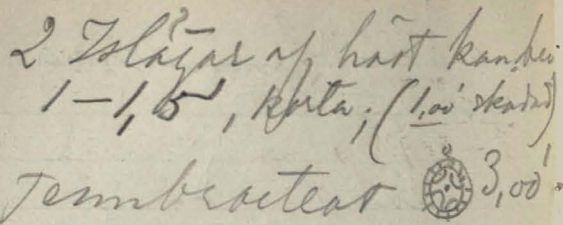 2 Islägar af häst kan bei
1–1,5, korta; (1,00 skadad)
Tennbracteat 3,00